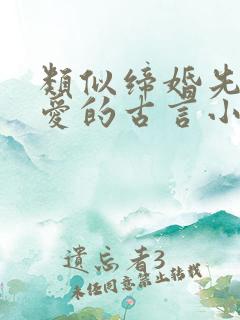 類似缔婚先
愛的古言小
遺忘者3
未经同意禁止转载